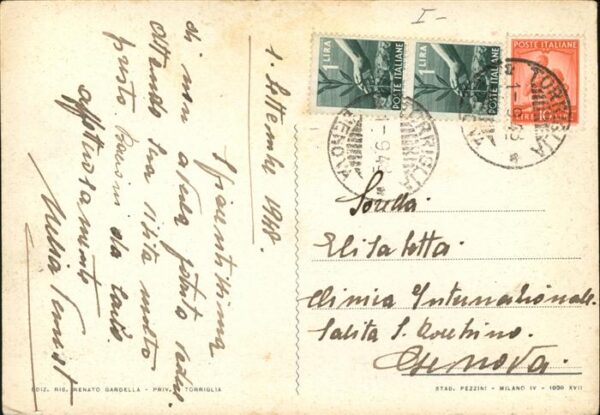 I-
1 LIRA
POSTE ITALIANE
1 LIRA
POSTE ITALIANE
POSTE ITALIANE
LIRE 10
TORRIGLIA
GENOVA
1-9-48
TORRIGLIA
1. Settembre 1948.
Spiacentissima
di non averla potuta vedere
attendo sua visita molto
presto Bacioni da
affettuosamente
Sorella.
Elisabetta.
Clinica Internazionale.
Salita S. Rocchino.
Genova.
EDIZ. RIS. RENATO GARDELLA - PRIV. - TORRIGLIA
STAB. PEZZINI - MILANO IV - 1939 XVII